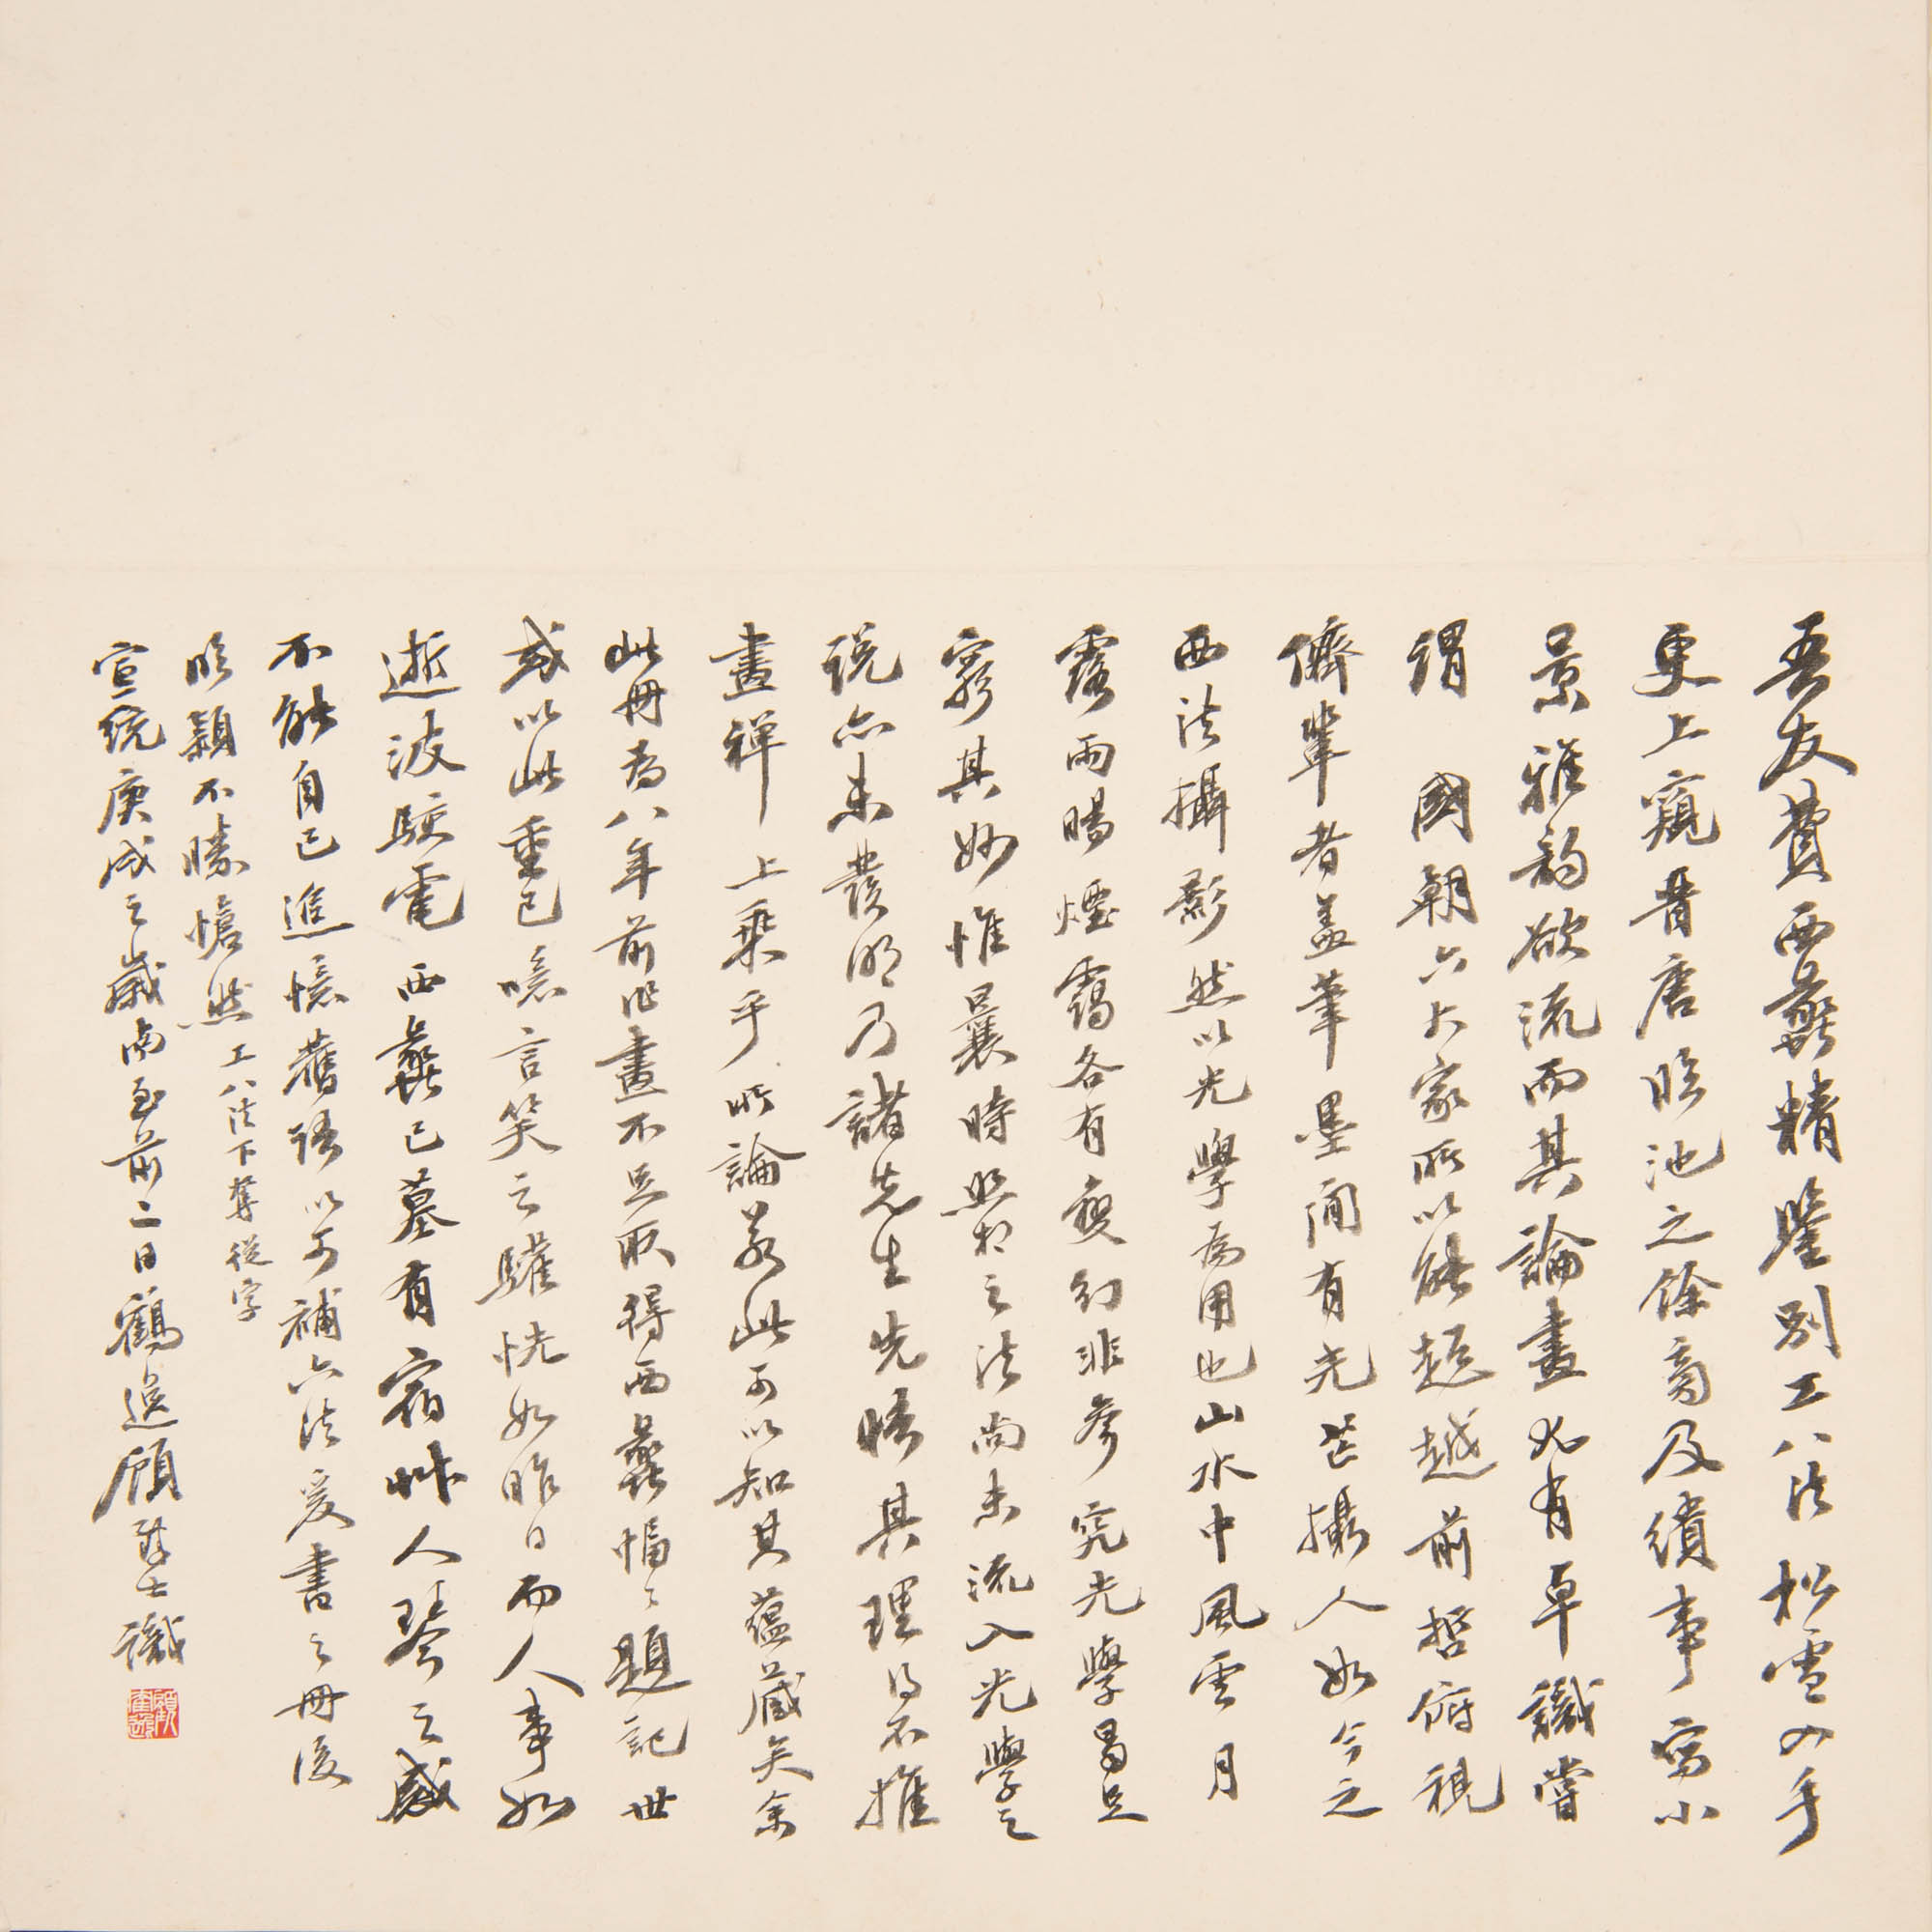 吾友費西蠡精鑒別工八法松雪入手
更上窺晉唐臨池之餘旁及繢事寫小
景雅韵欲流而其論畫尤有卓識嘗
謂 國朝六大家所以能超越前哲俯視
儕輩者蓋筆墨間有光芒攝人如今之
西法攝影然以光學為用也山水中風雲月
露雨暘煙靄各有變幻非參究光學曷足
窮其妙惟曩時照相之法尚未流入光學之
說亦未發明乃諸先生先悟其理得不推
畫禪上乘乎所論若此可以知其蘊藏矣余
此冊為八年前作畫不足取得西蠡幅〻題記世
或以此重已噫言笑之驩恍如昨日而人事如
逝波駛電西蠡已墓有宿艸人琴之感
不能自已進憶舊語以可補六法爰書之冊後
臨穎不勝愴然 工八法下奪從字
宣統庚戌之歲南至前二日鶴逸顧麟士識
顧鶴逸